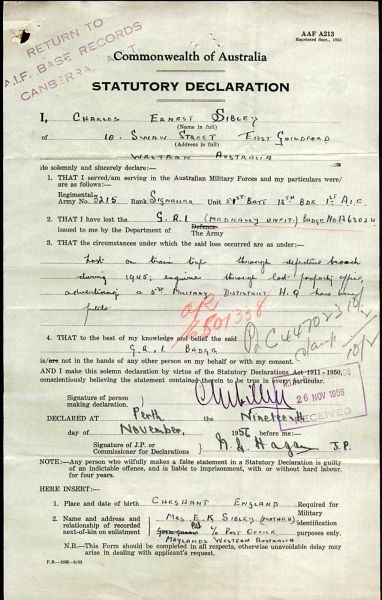 AAF A213
Reprinted Sept., 1952
RETURN TO
A.I.F. BASE RECORDS
CANBERRA, A.C.T.
Commonwealth of Australia
STATUTORY DECLARATION
I, CHARLES ERNEST SIBLEY
(Name in full)
of 10. SWAN STREET EAST GUILDFORD
(Address in full)
WESTERN AUSTRALIA
do solemnly and sincerely declare:—
1. THAT I served/am serving in the Australian Military Forces and my particulars were/
are as follows:—
Regimental
Army No. 3215 Rank SIGNALLER Unit 51st BATT 13TH BDE 1st A.I.F.
2. THAT I have lost the G.R.I (MEDICALLY UNFIT) BADGE No
issued to me by the Department of Defence
The Army
3. THAT the circumstances under which the said loss occurred are as under:—
Lost on train trip through defective brooch
during 1945, enquiries through lost property office,
advertising & 5th MILITARY DISTRICT H.Q have been
futile
4. THAT to the best of my knowledge and belief the said
G.R.I BADGE
is/are not in the hands of any other person on my behalf or with my consent.
AND I make this solemn declaration by virtue of the Statutory Declarations Act 1911-1950,
conscientiously believing the statement contained therein to be true in every particular.
Signature of person
making declaration.
26 NOV 1956
RECEIVED
DECLARED AT Perth the Nineteenth
day of November, 1956 before me:—
Signature of J.P. or
Commissioner for Declarations J.P.
NOTE:—Any person who wilfully makes a false statement in a Statutory Declaration is guilty
of an indictable offence, and is liable to imprisonment, with or without hard labour,
for four years.
HERE INSERT:—
1. Place and date of birth CHESHANT ENGLAND Required for
Military
2. Name and address and MRS E K SIBLEY (MOTHER) identification
relationship of recorded c/o POST OFFICE purposes only.
next-of-kin on enlistment MAYLANDS WESTERN AUSTRALIA
N.B.—This Form should be completed in all respects, otherwise unavoidable delay may
arise in dealing with applicant's request.